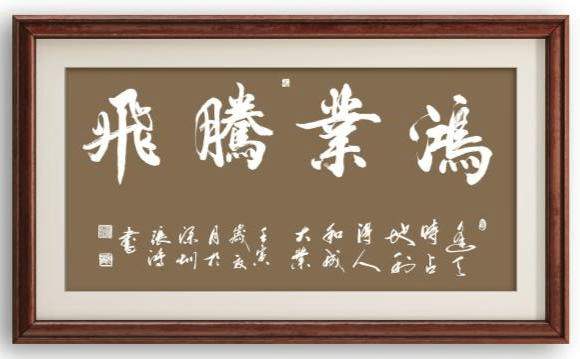 鴻業騰飛
逢天
時占
地利
得人
和成
大業
壬寅
歲夏
月於
深圳
書